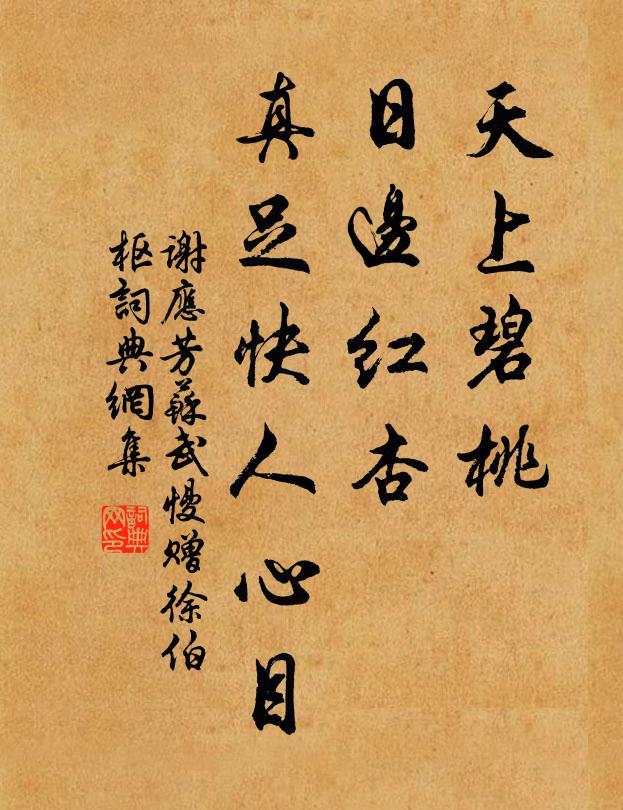 天上碧桃
日邊紅杏
真足快人心目
謝應芳蘇武慢贈徐伯
樞詞典網集
詞典
网印